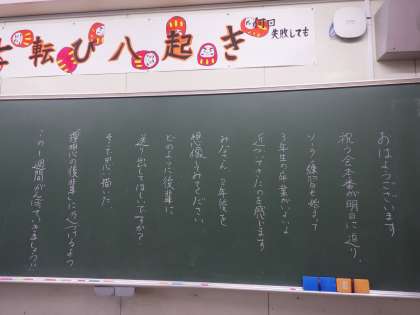 七転び八起き
何回
失敗しても
おはようございます
祝う会本番が明日に迫り、
ソング練習も始まって
3年生の卒業がいよいよ
近づいてきたのを感じます
みなさん、2年後を
想像してみてください
どのように後輩に
送り出してほしいですか?
そこで思い描いた
"理想の後輩"になっているよう
この1週間がんばっていきましょう!!